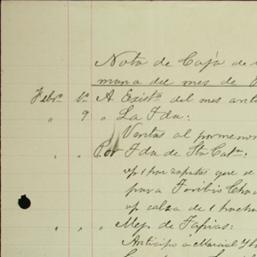 Nota de Caja de
mana del mes de
Febro. 1o. A Exista. del mes ant
" 9 " La Fda:
Ventas al pormenor
" " Por Fda de Sta Cata.
vp 1 par zapatos que se
para Toribio
vp calza de 1 hacha
" " " Mep. de Tapias:
Anticipo a Marcial